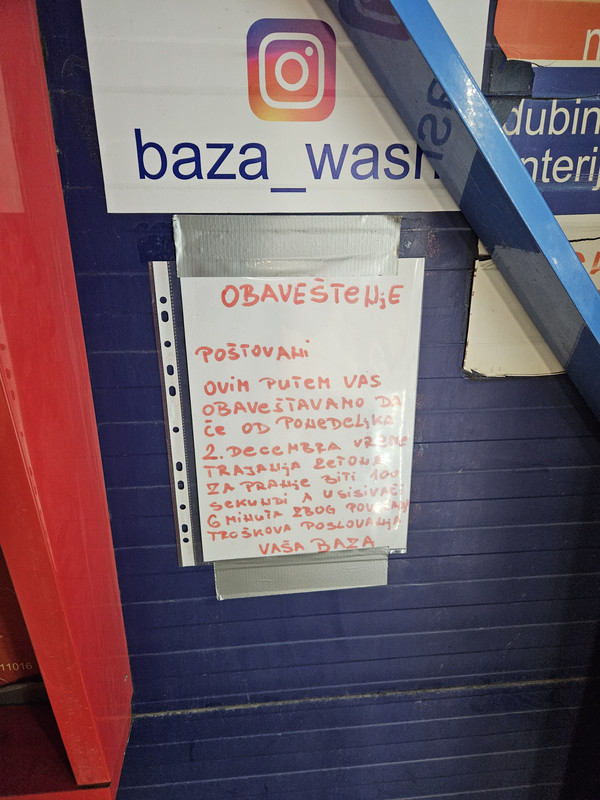 baza_wash
dubin
nterij
OBAVEŠTENJE
POŠTOVANI
OVIM PUTEM VAS
OBAVEŠTAVAMO DA
ĆE OD PONEDELJKA
2. DECEMBRA VREME
TRAJANJA ŽETONA
ZA PRANJE BITI 100
SEKUNDI A USISIVAČI
6 MINUTA ZBOG
TROŠKOVA POSLOVANJA
VAŠA BAZA
11016